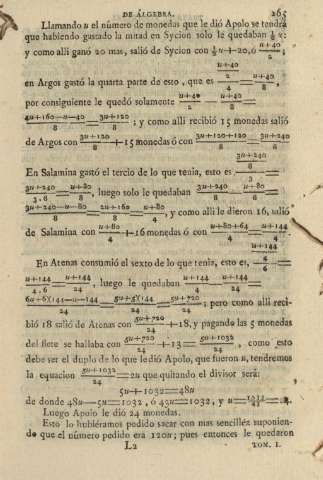 DE ÁLGEBRA. 265
Llamando u el número de monedas que le dió Apolo se tendrá
que habiendo gastado la mitad en Sycion solo le quedaban ½ u:
y como alli ganó 20 mas, salió de Sycion con ½u+20, ó (u+40)/2;
en Argos gastó la quarta parte de esto, que es ((u+40)/2)/4 = (u+40)/8,
por consiguiente le quedó solamente (u+40)/2 − (u+40)/8 =
(4u+160−u−40)/8 = (3u+120)/8; y como alli recibió 15 monedas salió
de Argos con (3u+120)/8 + 15 monedas ó con (3u+120+120)/8 = (3u+240)/8
En Salamina gastó el tercio de lo que tenia, esto es ((3u+240)/8)/3 =
(3u+240)/3.8 = (u+80)/8, luego solo le quedaban (3u+240)/8 − (u+80)/8 =
(3u+240−u−80)/8 = (2u+160)/8 = (u+80)/4, y como alli le dieron 16, salió
de Salamina con (u+80)/4 + 16 monedas ó con (u+80+64)/4 = (u+144)/4
En Atenas consumió el sexto de lo que tenia, esto es, ((u+144)/4)/6 =
(u+144)/4.6 = (u+144)/24, luego le quedaban (u+144)/4 − (u+144)/24 =
(6u+6×144−u−144)/24 = (5u+5×144)/24 = (5u+720)/24; pero como alli reci-
bió 18 salió de Atenas con (5u+720)/24 + 18, y pagando las 5 monedas
del flete se hallaba con (5u+720)/24 + 13 = (5u+1032)/24, como esto
debe ser el duplo de lo que le dió Apolo, que fueron u, tendremos
la equacion (5u+1032)/24 = 2u que quitando el divisor será:
5u+1032=48u
de donde 48u−5u=1032, ó 43u=1032, y u=1032/43=24.
Luego Apolo le dió 24 monedas.
Esto lo hubiéramos podido sacar con mas sencilléz suponien-
do que el número pedido era 120u; pues entonces le quedaron
L2 TOM. I.